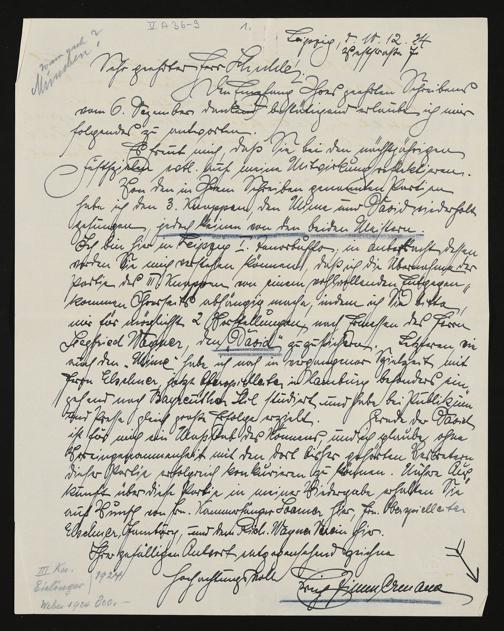 V A 36-9
1.
Leipzig, d. 10.12.24
Weststraße 7
wann nach München?
Sehr geehrter Herr
Den Empfang Ihres geehrten Schreibens
vom 6. Dezember dankend bestätigend erlaube ich mir
folgendes zu antworten.
Es freut mich, daß Sie bei den nächstjährigen
Festspielen evtl. auf meine Mitwirkung reflektieren.
Von den in Ihrem Schreiben genannten Partien
habe ich den 3. Knappen, den Mime und David wiederholt
gesungen, jedoch keinen von den beiden Meistern.
Ich bin hier in Leipzig I. Tenorbuffo, in dessen
werden Sie mir verstehen können, daß ich die Übernahme der
Partie des III. Knappen von einem wohlwollenden Entgegen-
kommen Ihrerseits abhängig mache, indem ich Sie bitte,
mir für möglichst 2 Vorstellungen nach Ermessen des Herrn
Siegfried Wagner, den "David" zuzusichern. Letzteren wie
auch den "Mime" habe ich noch in vergangener Spielzeit mit
Herrn Elschner, jetzt Oberspielleiter in Hamburg besonders ein-
gehend nach Bayreuther Stil studiert und habe bei Publikum
und Presse gleich große Erfolge erzielt. Gerade der David
ist für mich ein des Könnens, und ich glaube, ohne
Voreingenommenheit mit den dort bisher gehörten Vertretern
dieser Partie erfolgreich konkurrieren zu können. Nähere Aus-
kunft über diese Partie in meiner Wiedergabe erhalten Sie
auf Wunsch von Hr. Kammersänger hier, Hr. Oberspielleiter
Elschner, Hamburg, und dem Rich. Wagner Verein hier.
Ihrer gefälligen Antwort entgegensehend zeichne
Hochachtungsvoll
III. Kn.
1924
Weber 1924